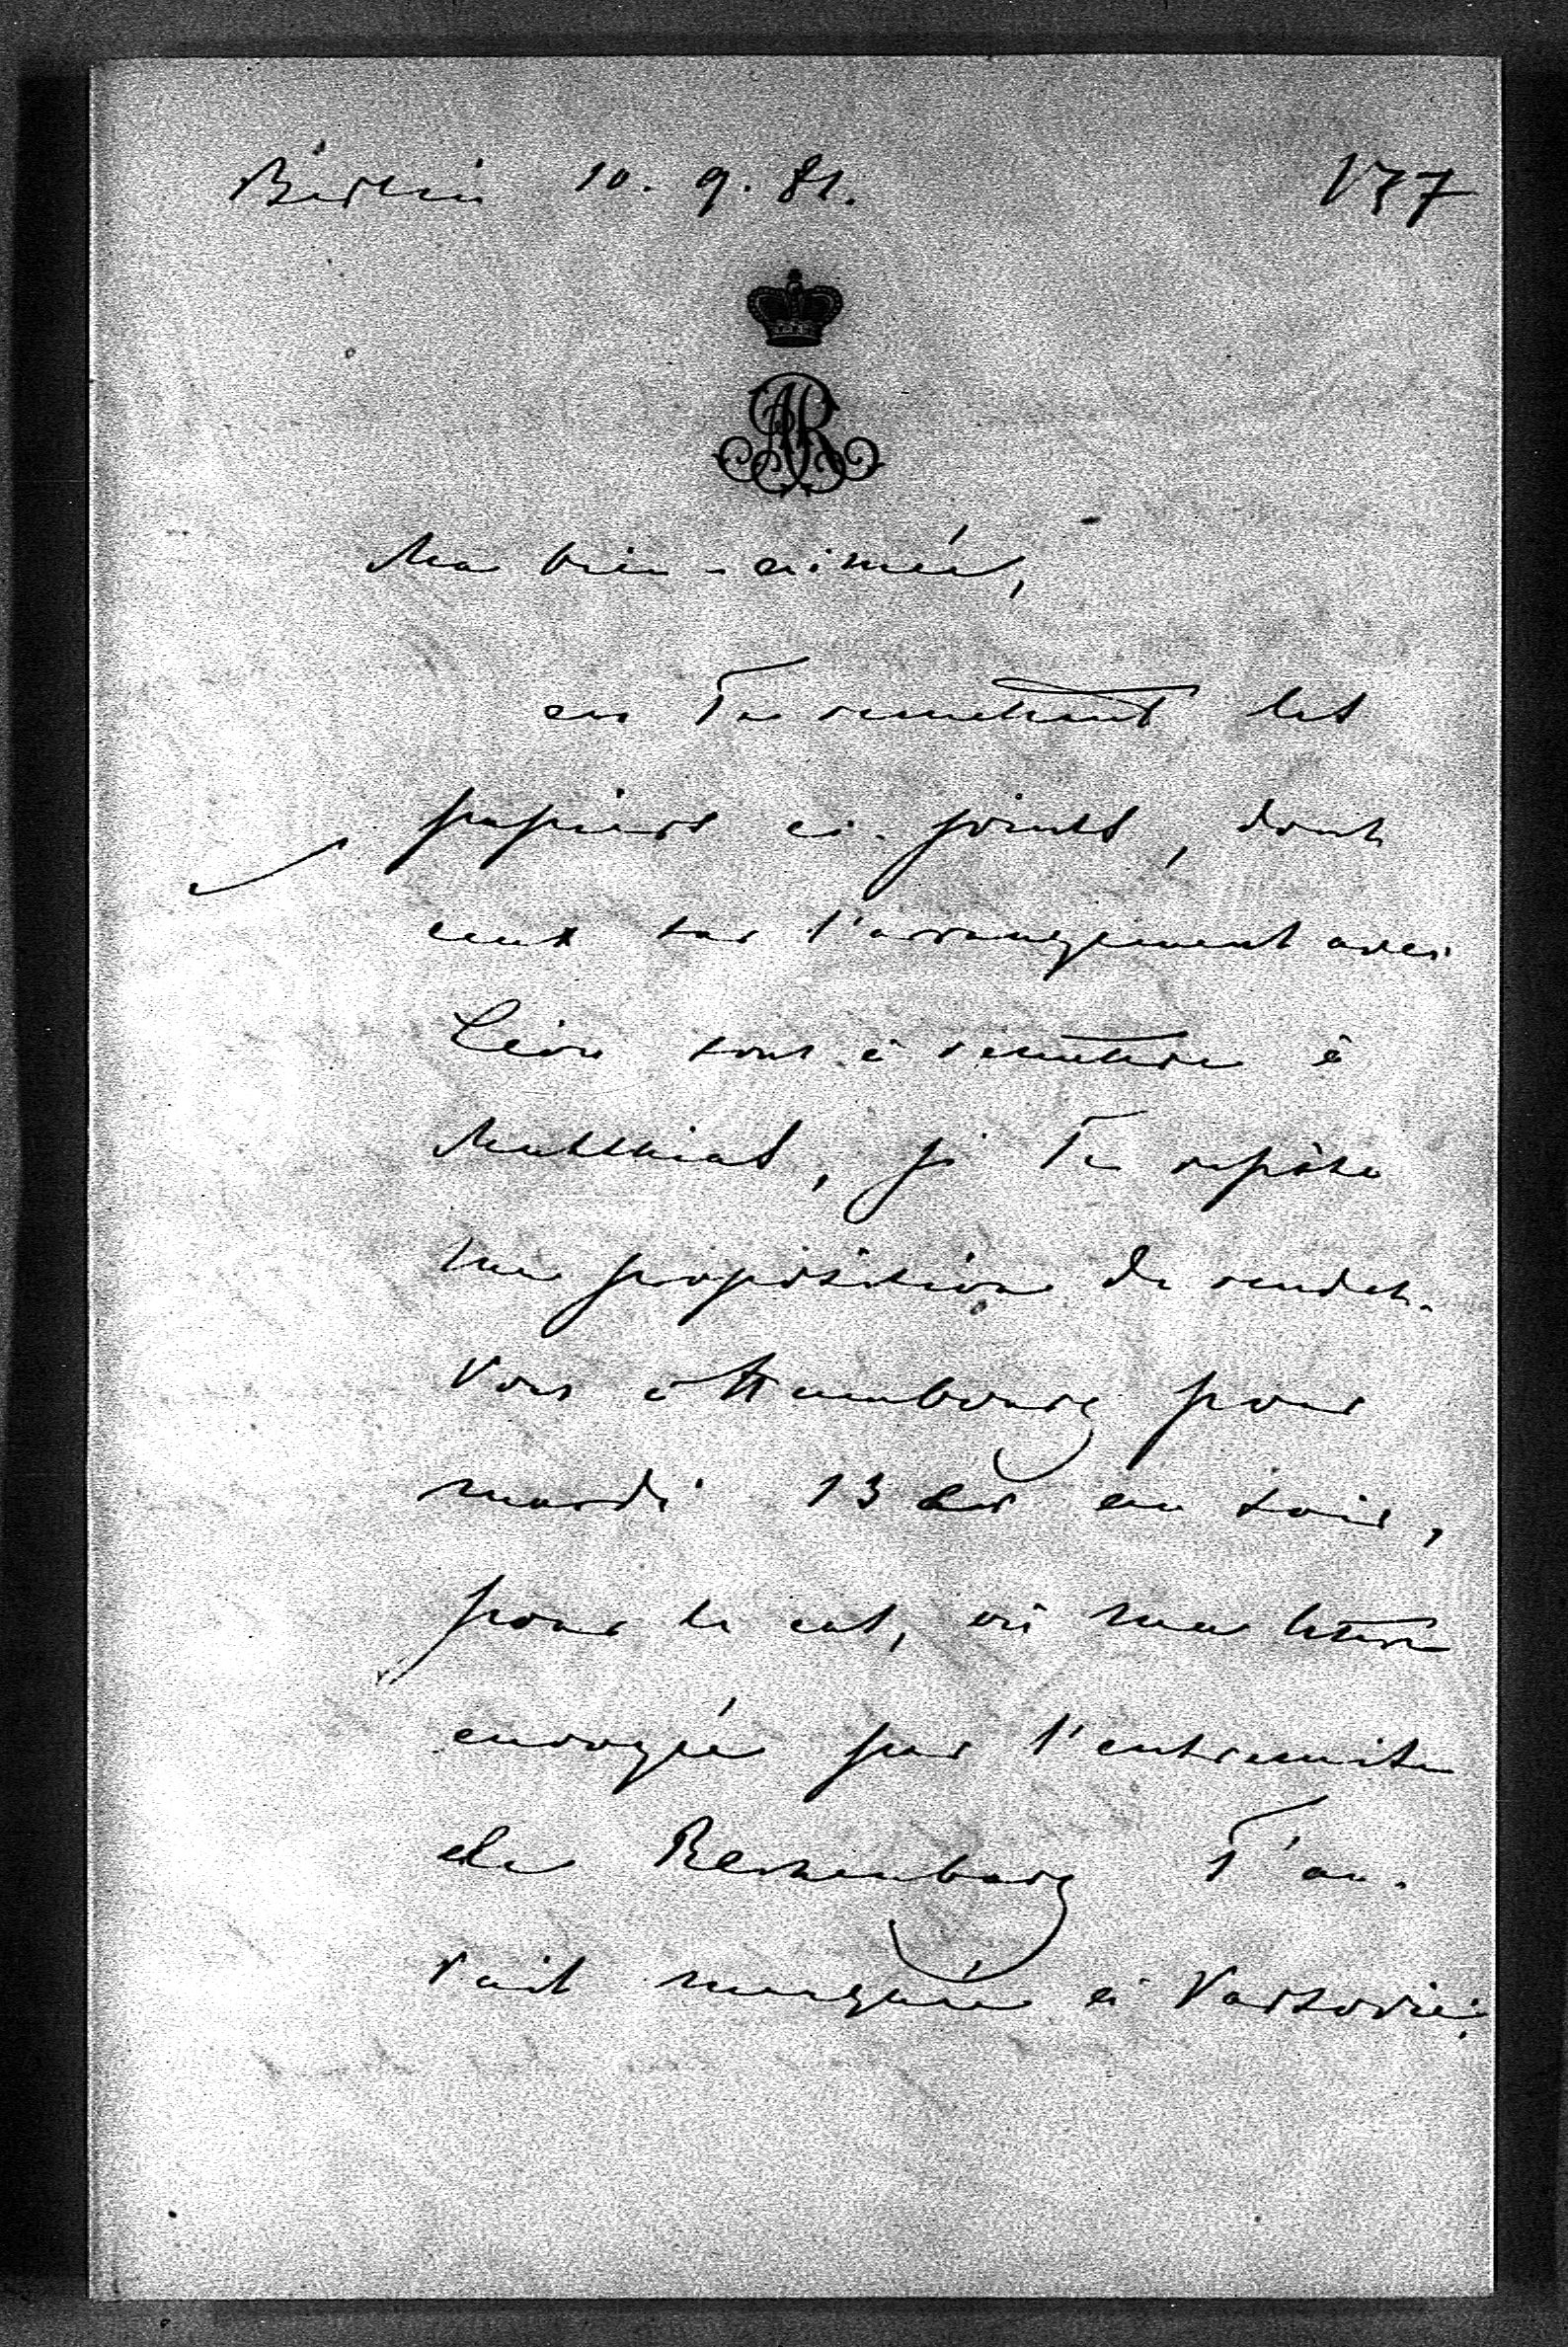 Berlin 10. 9. 81.
137
AR
Ma bien-aimée,
en Te remettant les
papiers ci-joints, dont
ceux sur l'arrangement avec
Léon sont à remettre à
Matthias, je Te repète
ma proposition de rendez-
vous à Hambourg pour
mardi 13 au soir,
pour le cas, où ma lettre
envoyée par l'entremise
de Rechenberg T'au-
rait manquée à Varsovie.